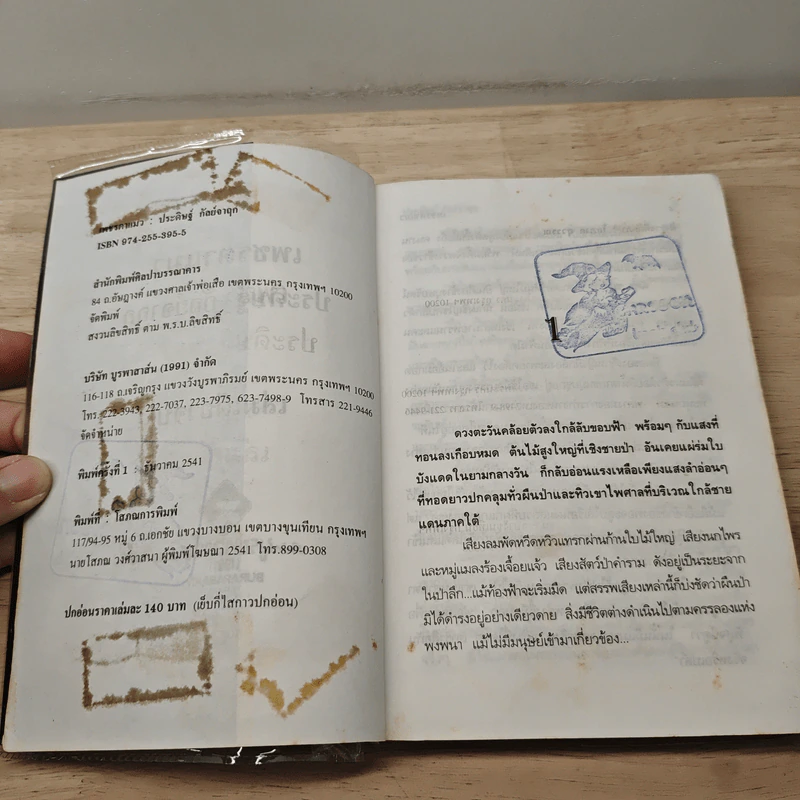 เพชรตาแมว : ประดิษฐ์ กัลย์จาฤก
ISBN 974-255-395-5
สำนักพิมพ์ศิลปาบรรณาคาร
84 ถ.อัษฎางค์ แขวงศาลเจ้าพ่อเสือ เขตพระนคร กรุงเทพฯ 10200
จัดพิมพ์
สงวนลิขสิทธิ์ ตาม พ.ร.บ.ลิขสิทธิ์
บริษัท บูรพาสาส์น (1991) จำกัด
116-118 ถ.เจริญกรุง แขวงวังบูรพาภิรมย์ เขตพระนคร กรุงเทพฯ 10200
โทร. 222-3943, 222-7037, 223-7975, 623-7498-9 โทรสาร 221-9446
จัดจำหน่าย
พิมพ์ครั้งที่ 1 : ธันวาคม 2541
พิมพ์ที่ : โสภณการพิมพ์
117/94-95 หมู่ 6 ถ.เอกชัย แขวงบางบอน เขตบางขุนเทียน กรุงเทพฯ
นายโสภณ วงศ์วาสนา ผู้พิมพ์โฆษณา 2541 โทร.899-0308
ปกอ่อนราคาเล่มละ 140 บาท (เย็บกี่ไสกาวปกอ่อน)
1
ดวงตะวันคล้อยตัวลงใกล้ลับขอบฟ้า พร้อมๆ กับแสงที่
ทอนลงเกือบหมด ต้นไม้สูงใหญ่ที่เชิงชายป่า อันเคยแผ่ร่มใบ
บังแดดในยามกลางวัน ก็กลับอ่อนแรงเหลือเพียงแสงลำอ่อนๆ
ที่ทอดยาวปกคลุมทั่วผืนป่าและทิวเขาไพศาลที่บริเวณใกล้ชาย
แดนภาคใต้
เสียงลมพัดหวีดหวิวแทรกผ่านก้านใบไม้ใหญ่ เสียงนกไพร
และหมู่แมลงร้องเจื้อยแจ้ว เสียงสัตว์ป่าคำราม ดังอยู่เป็นระยะจาก
ในป่าลึก...แม้ท้องฟ้าจะเริ่มมืด แต่สรรพเสียงเหล่านี้ก็บ่งชัดว่าผืนป่า
มิได้ดำรงอยู่อย่างเดียวดาย สิ่งมีชีวิตต่างดำเนินไปตามครรลองแห่ง
พงพนา แม้ไม่มีมนุษย์เข้ามาเกี่ยวข้อง...